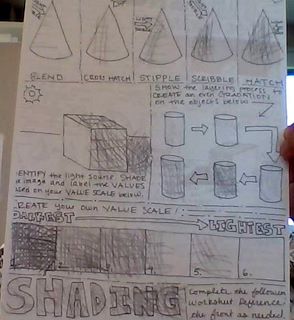 BLEND CROSS HATCH STIPPLE SCRIBBLE HATCH
SHOW the layering process to
CREATE an even GRADATION
on the objects below
IDENTIFY the light source. SHADE
a image and label the VALUES
used on your VALUE SCALE below.
CREATE your own VALUE SCALE!
DARKEST LIGHTEST
5. 6.
SHADING
Complete the following
worksheet. Reference
the front as needed.